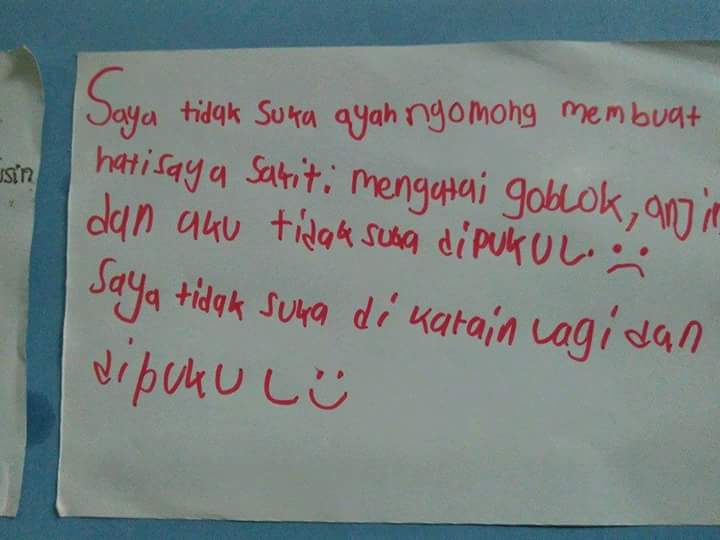 usin
Saya tidak suka ayah ngomong membuat
hati saya sakit: mengatai goblok, anjin
dan aku tidak suka dipukul. :(
Saya tidak suka di katain lagi dan
dipukul :)